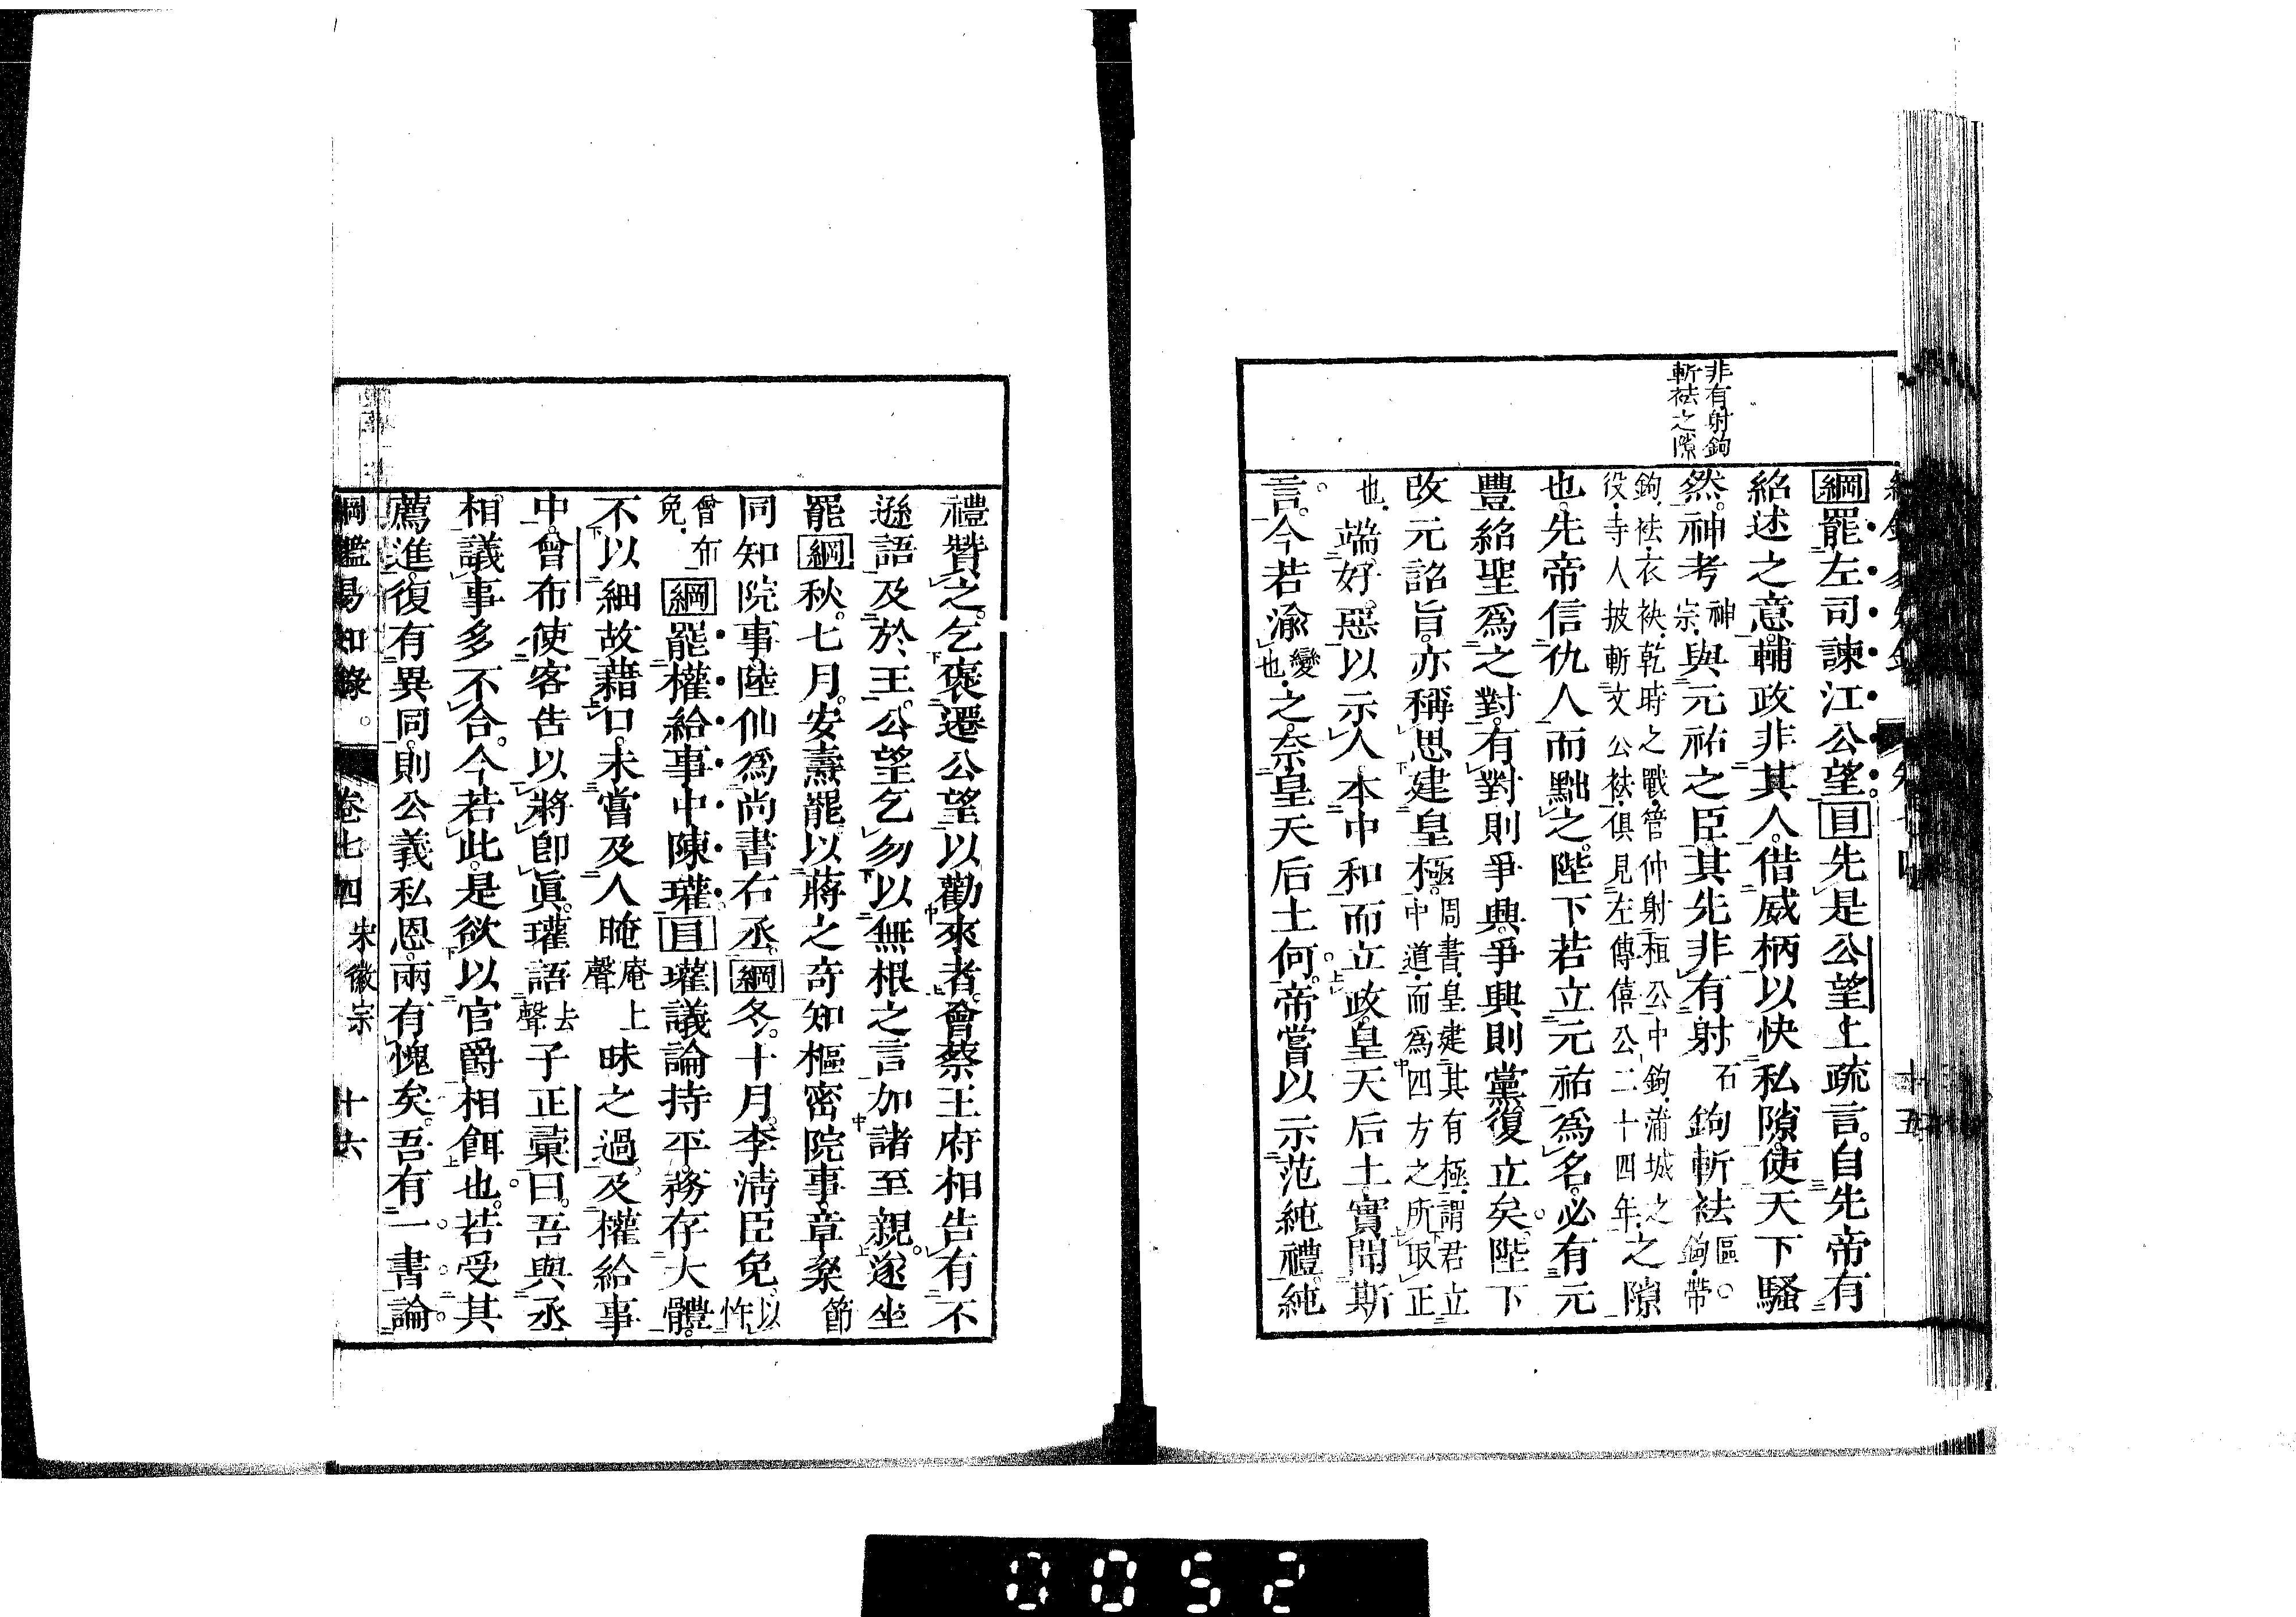 非有射鉤
斬袪之隙
綱罷左司諫江公望。目先是公望上疏言。自先帝有
紹述之意。輔政非其人。借威柄以快私隙。使天下騷
然。神考神宗。與元祐之臣。其先非有射石鉤斬袪區。鉤。帶
鉤。袪。衣袂。乾時之戰。管仲射桓公中鉤。蒲城之
役。寺人披斬文公袪。俱見左傳僖公二十四年。之隙
也。先帝信仇人而黜之。陛下若立元祐爲名。必有元
豐紹聖爲之對。有對則爭興。爭興則黨復立矣。陛下
改元詔旨。亦稱思建皇極。周書。皇建其有極。謂君立
中道。而為四方之所取正
也。端好惡以示人。本中和而立政。皇天后土。實聞斯
言。今若渝變也。之。奈皇天后土何。帝嘗以示范純禮。純
十五
禮贊之。乞褒遷公望以勸來者。會蔡王府相告有不
遜語及於王。公望乞勿以無根之言加諸至親。遂坐
罷綱秋。七月。安燾罷以蔣之奇知樞密院事。章楶節
同知院事。陸佃爲尚書右丞。綱冬。十月。李淸臣免。以忤
曾布免。綱罷權給事中陳瓘。目瓘議論持平。務存大體。
不以細故藉口。未嘗及人晻庵上聲昧之過。及權給事
中。曾布使客告以將卽眞。瓘語去聲子正彙曰。吾與丞
相議事多不合。今若此。是欲以官爵相餌也。若受其
薦進。復有異同。則公義私恩。兩有愧矣。吾有一書論。
綱鑑易知錄。 卷七四 宋徽宗 十六